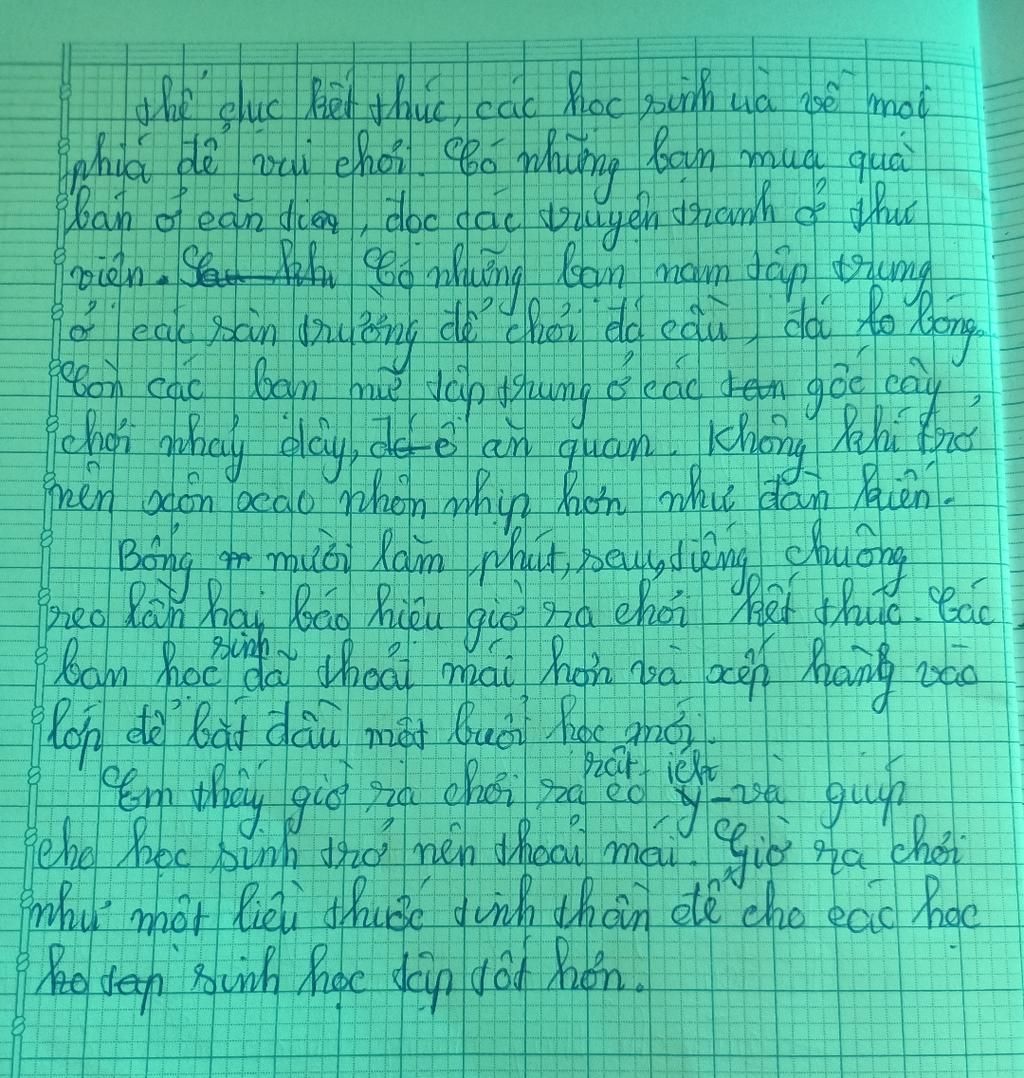 thể dục kết thúc, các học sinh ùà về mọi
phiá để vui chơi. Có những bạn mua quà
bán ở căn tin, đọc các truyện tranh ở thư
viện. Có những bạn nam tập trung
ở các sân trường để chơi đá cầu, đá
Còn các bạn nữ tập trung ở các gốc cây,
chơi nhảy dây, ô ăn quan. Không khí trở
nên xôn xao nhộn nhịp hơn như đàn kiến.
Bỗng mười lăm phút, sau, tiếng chuông
reo lần hai báo hiệu giờ ra chơi kết thúc. Các
bạn học sinh đã thoải mái hơn và xếp hàng vào
lớp để bắt đầu một buổi học mới.
Em thấy giờ ra chơi ra có rất ích và giúp
cho học sinh trở nên thoải mái. Giờ ra chơi
như một liều thuốc tinh thần để cho các học
sinh học tập tốt hơn.